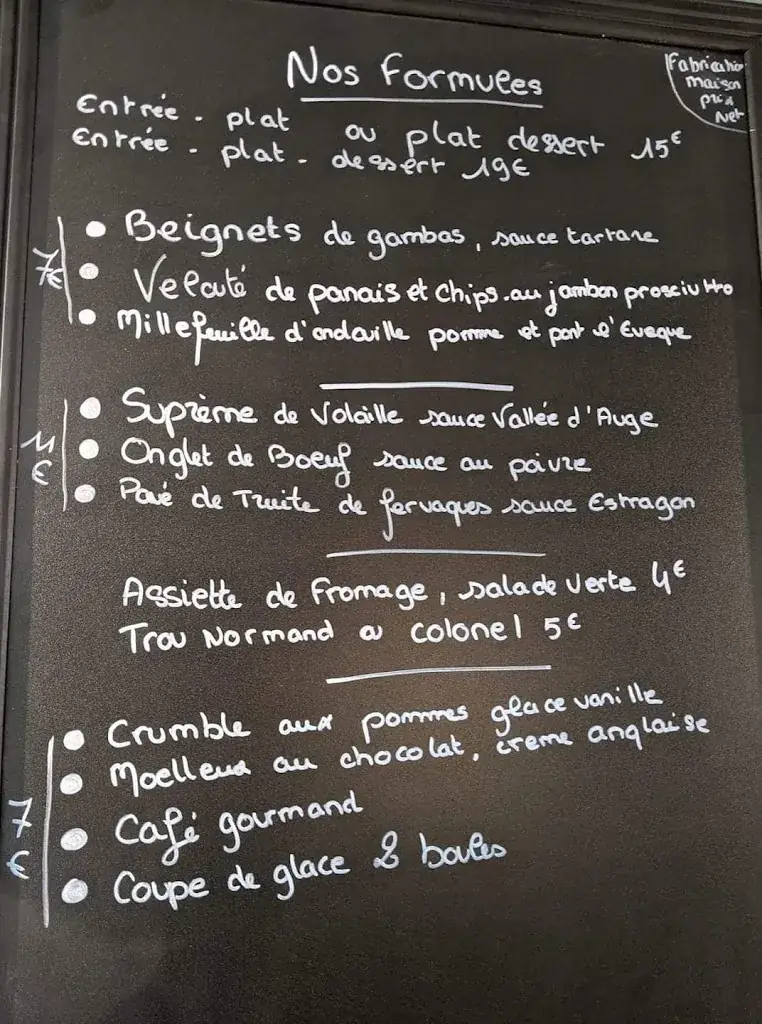 Nos Formules
Fabrication
maison
prix
Net
Entrée - plat ou plat dessert 15€
Entrée - plat - dessert 19€
7€
• Beignets de gambas, sauce tartare
• Velouté de panais et chips au jambon prosciutto
• Millefeuille d'andouille pomme et pont l'Eveque
11€
• Suprème de Volaille sauce Vallée d'Auge
• Onglet de Boeuf sauce au poivre
• Pavé de Truite de fervaques sauce Estragon
Assiette de fromage, salade verte 4€
Trou Normand ou colonel 5€
7€
• Crumble aux pommes glace vanille
• Moelleux au chocolat, creme anglaise
• Café gourmand
• Coupe de glace 2 boules